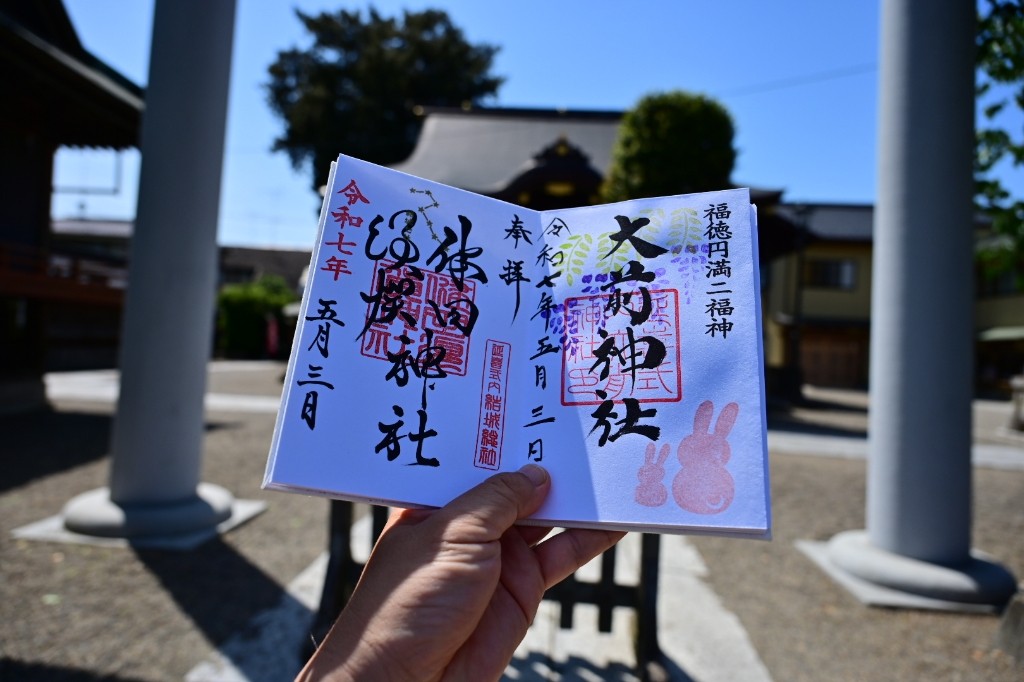 福徳円満二福神
大前神社
令和七年五月三日
奉拝
延喜式内 結城總社
健田
須賀神社
令和七年
五月三日